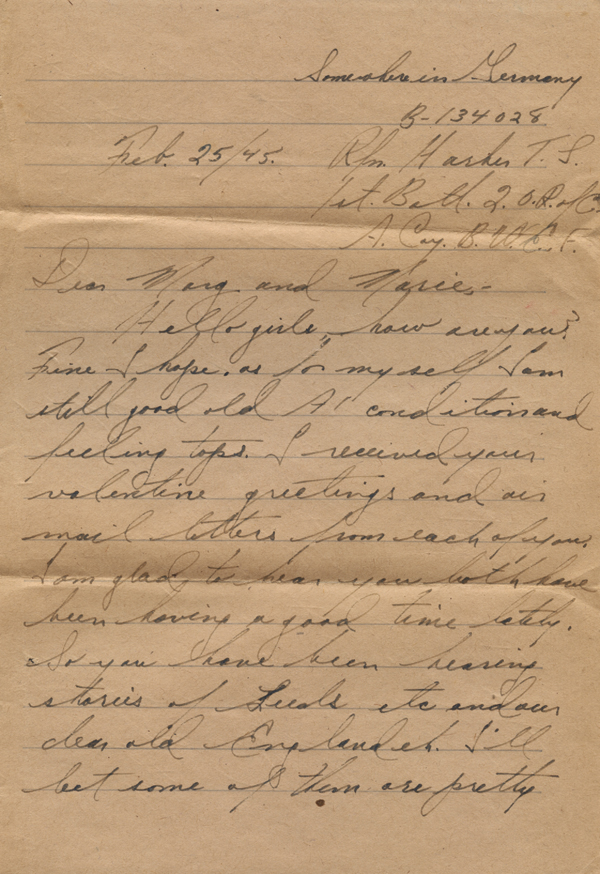 Somewhere in Germany
B-134028
Feb. 25/45. Rfn. Harker T. S.
1st. Batt. Q. O. R. of C.
A. Coy. B. W. E. F.
Dear Marg and Marie,-
Hello girls, how are you?
Fine I hope. as for myself I am
still good old A1 condition and
feeling tops. I received your
valentine greetings and air
mail letters from each of you.
I am glad to hear you both have
been having a good time lately.
So you have been hearing
stories of Leeds etc and our
dear old England eh. I'll
bet some of them are pretty